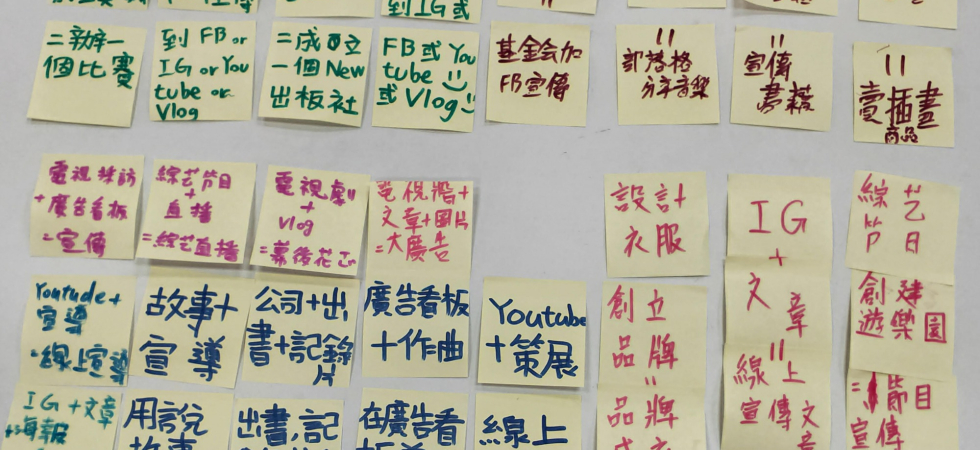 到IG或
=辦一
個比賽
到 FB or
IG or You
tube or
Vlog
=成立
一個New
出板社
FB或You
tube
或Vlog
基金会加
FB宣傳
=
部落格
分享音樂
=
宣傳
書籍
=
賣插畫
商品
電視採訪
+廣告看板
=宣傳
綜艺节目
+
直播
=綜艺直播
電視劇
+
Vlog
=幕後花
文章+图片
=大廣告
設計
衣服
IG
+
文
章
=
線上
宣傳文
綜艺
节目
Youtude+
宣導
=線上宣導
故事+
宣導
公司+出
書+記錄
片
廣告看板
+作曲
Youtube
+策展
創立
品牌
=
品牌
創建
遊樂園
=節目
宣傳
IG+文章
+海報
用說
故事
出書,記
在廣告看
線上